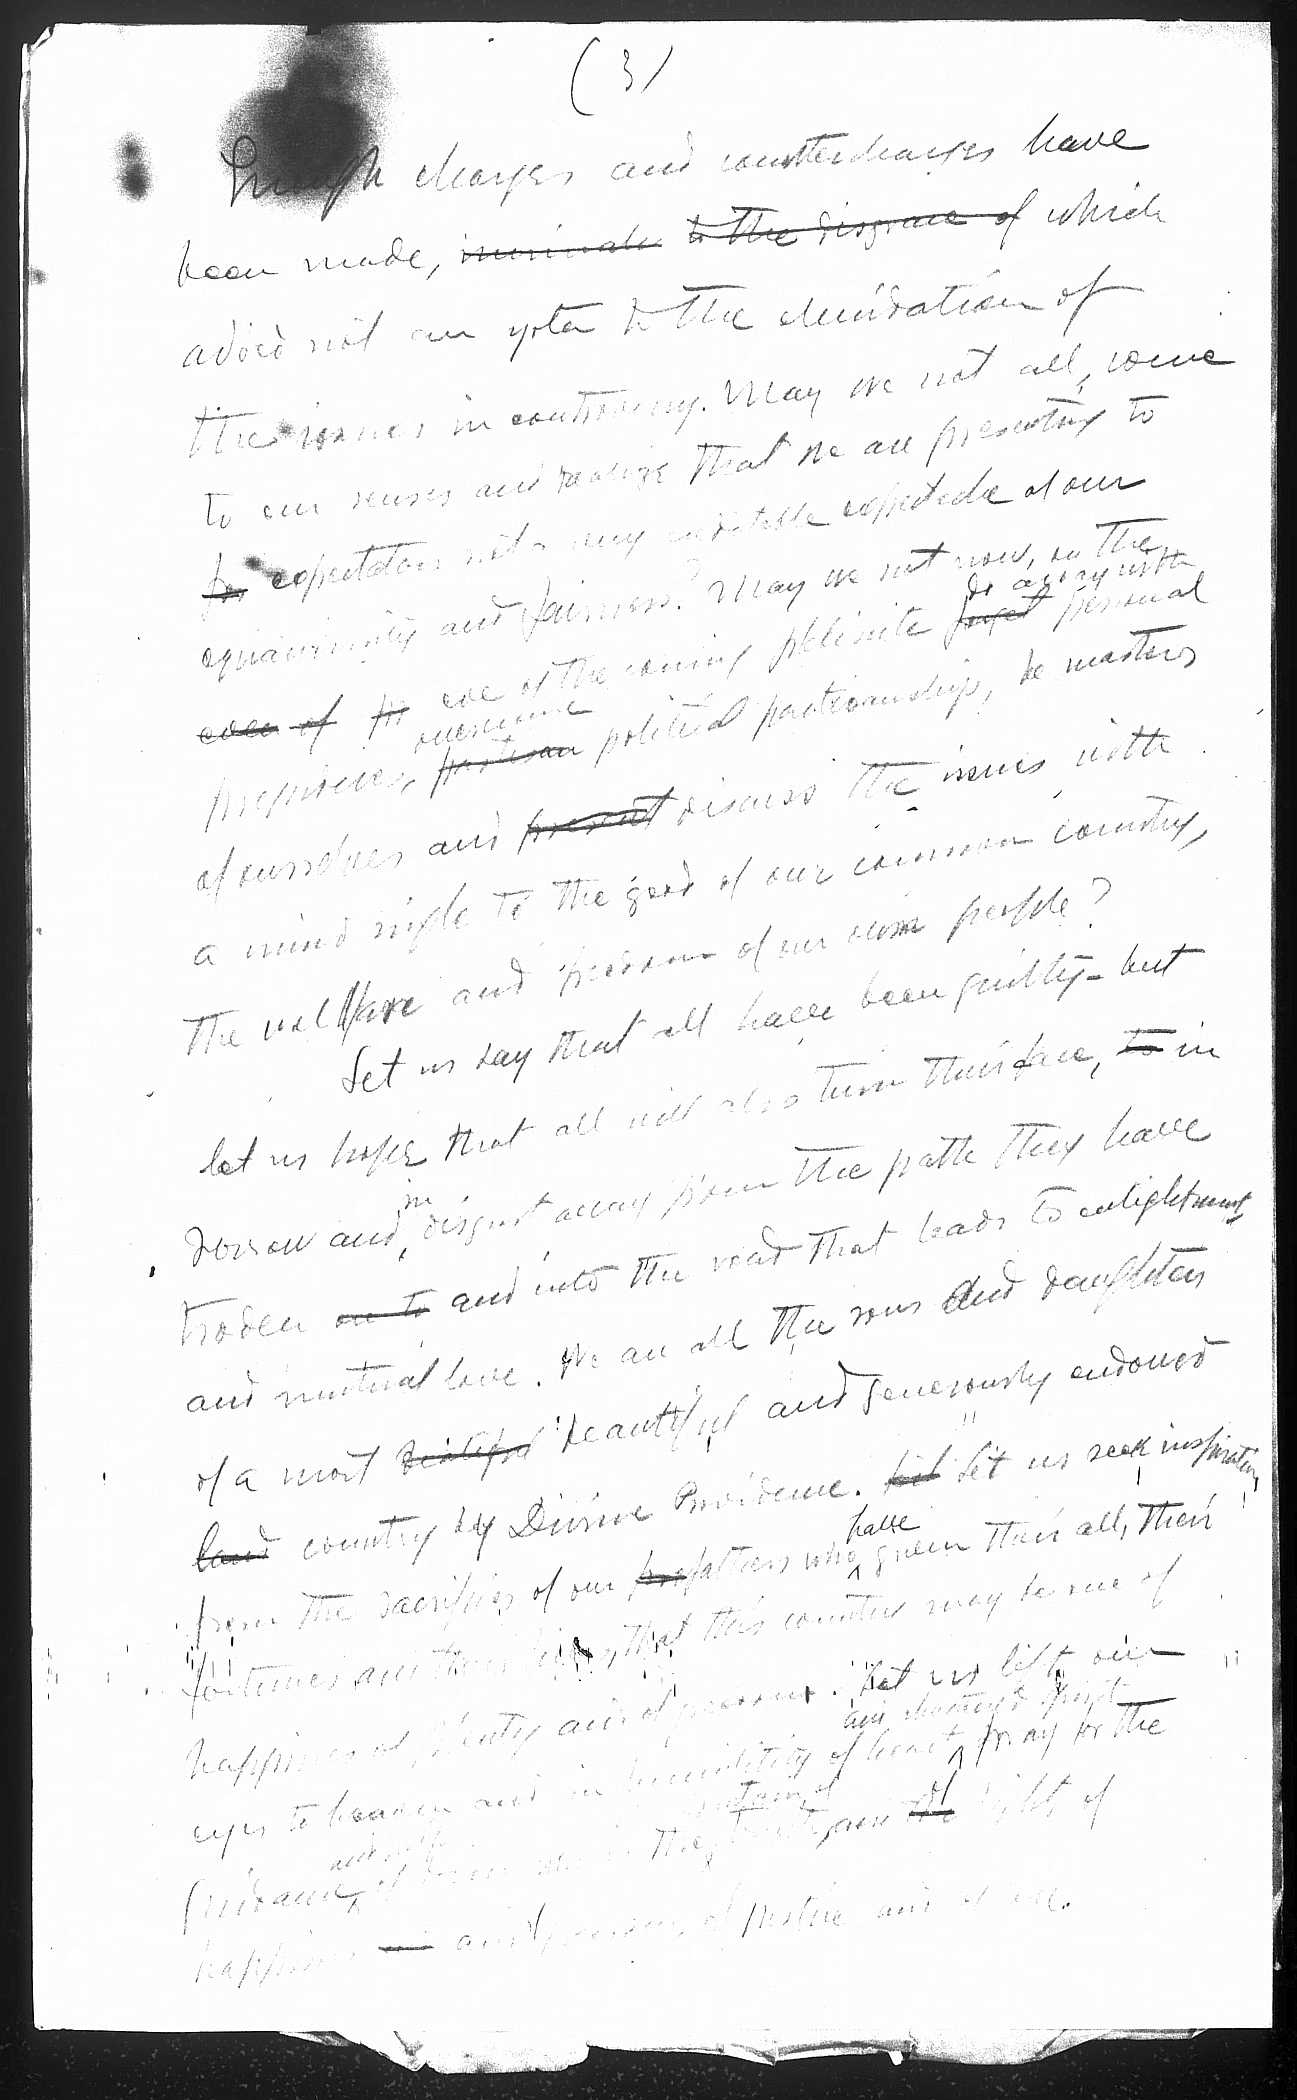 (3)
Enough charges and countercharges have
been made, to the disgrace of which
added not an yota to the elucidation of
the issues in controversy. May we not all, come
to our senses and realize that we are presenting to
for expectators not a very creditable expectacle of our
equanimity and fairness? May we not now, on the
do away with
even of the eve of the coming plebisite forget personal
overcome
prejudices, partisan political partisanship, be masters
of ourselves and present discuss the issues with
a mind single to the good of our common country,
the wellfare and freedom of our own people?
Let us say that all have been guilty - but
let us hope that all will also turn their face, to in
in
sorrow and disgust away from the path they have
troden on to and into the road that leads to enlightment
and mutual love. We are all the sons and daughters
of a most beautiful and generously endowed
land country by Divine Providence. Let us seek inspiration
have
from the sacrifices of our forefathers who given their all, their
fortunes and their lives, that this country may be one of
happiness, of plenty and of freedom. Let us lift our
and spirit
eyes to heaven and in humility of heart pray for the
guidance, of the and the light of
happiness and freedom, of justice and of love.